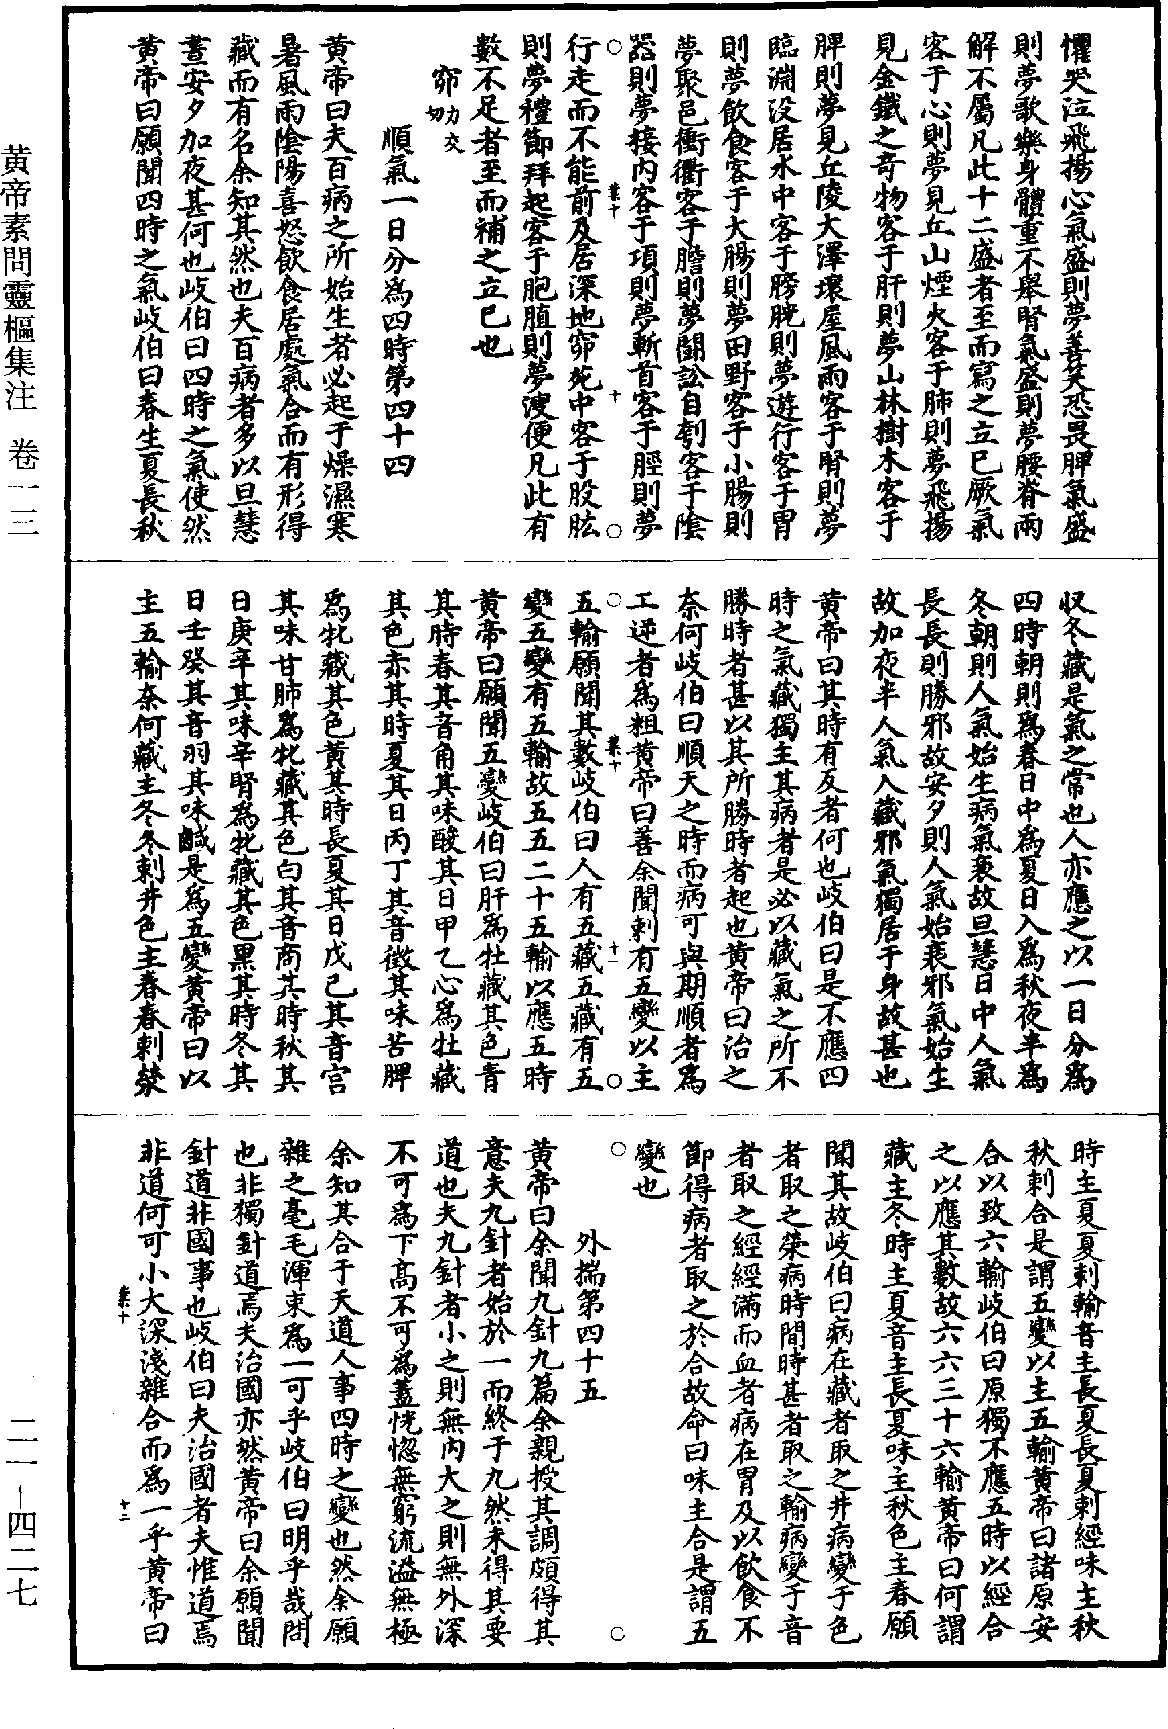 懼哭泣飛揚心氣盛則夢善笑恐畏脾氣盛
則夢歌樂身體重不舉腎氣盛則夢腰脊兩
解不屬凡此十二盛者至而寫之立已厥氣
客于心則夢見丘山煙火客于肺則夢飛揚
見金鐵之奇物客于肝則夢山林樹木客于
脾則夢見丘陵大澤壞屋風雨客于腎則夢
臨淵没居水中客于膀胱則夢遊行客于胃
則夢飲食客于大腸則夢田野客于小腸則
夢聚邑衝衢客于膽則夢鬭訟自刳客于陰
器則夢接內客于項則夢斬首客于脛則夢
行走而不能前及居深地窌苑中客于股肱
則夢禮節拜起客于胞䐈則夢溲便凡此有
數不足者至而補之立已也
窌力交切
順氣一日分爲四時第四十四
黄帝曰夫百病之所始生者必起于燥濕寒
暑風雨陰陽喜怒飲食居處氣合而有形得
藏而有名余知其然也夫百病者多以旦慧
晝安夕加夜甚何也岐伯曰四時之氣使然
黄帝曰願聞四時之氣岐伯曰春生夏長秋
収冬藏是氣之常也人亦應之以一日分爲
四時朝則爲春日中爲夏日入爲秋夜半爲
冬朝則人氣始生病氣衰故旦慧日中人氣
長長則勝邪故安夕則人氣始衰邪氣始生
故加夜半人氣入藏邪氣獨居于身故甚也
黄帝曰其時有反者何也岐伯曰是不應四
時之氣藏獨主其病者是必以藏氣之所不
勝時者甚以其所勝時者起也黄帝曰治之
奈何岐伯曰順天之時而病可與期順者爲
工逆者爲粗黄帝曰善余聞刺有五變以主
五輸願聞其數岐伯曰人有五藏五藏有五
變五變有五輸故五五二十五輸以應五時
黄帝曰願聞五變岐伯曰肝爲牡藏其色青
其時春其音角其味酸其日甲乙心爲牡藏
其色赤其時夏其日丙丁其音徵其味苦脾
爲牝藏其色黄其時長夏其日戊己其音宫
其味甘肺爲牝藏其色白其音商其時秋其
日庚辛其味辛腎爲牝藏其色黑其時冬其
日壬癸其音羽其味鹹是爲五變黄帝曰以
主五輸奈何藏主冬冬刺井色主春春刺滎
時主夏夏刺輸音主長夏長夏刺經味主秋
秋刺合是謂五變以主五輸黄帝曰諸原安
合以致六輸岐伯曰原獨不應五時以經合
之以應其數故六六三十六輸黄帝曰何謂
藏主冬時主夏音主長夏味主秋色主春願
聞其故岐伯曰病在藏者取之井病變于色
者取之滎病時間時甚者取之輸病變于音
者取之經經滿而血者病在胃及以飲食不
節得病者取之於合故命曰味主合是謂五
變也
外揣第四十五
黄帝曰余聞九針九篇余親授其調頗得其
意夫九針者始於一而終于九然未得其要
道也夫九針者小之則無內大之則無外深
不可爲下高不可爲蓋恍惚無窮流溢無極
余知其合于天道人事四時之變也然余願
雜之毫毛渾束爲一可乎岐伯曰明乎哉問
也非獨針道焉夫治國亦然黄帝曰余願聞
針道非國事也岐伯曰夫治國者夫惟道焉
非道何可小大深淺雜合而爲一乎黄帝曰
業十
十
業十
十一
業十
十二
黄帝素問靈樞集注 卷一三
二一–四二七